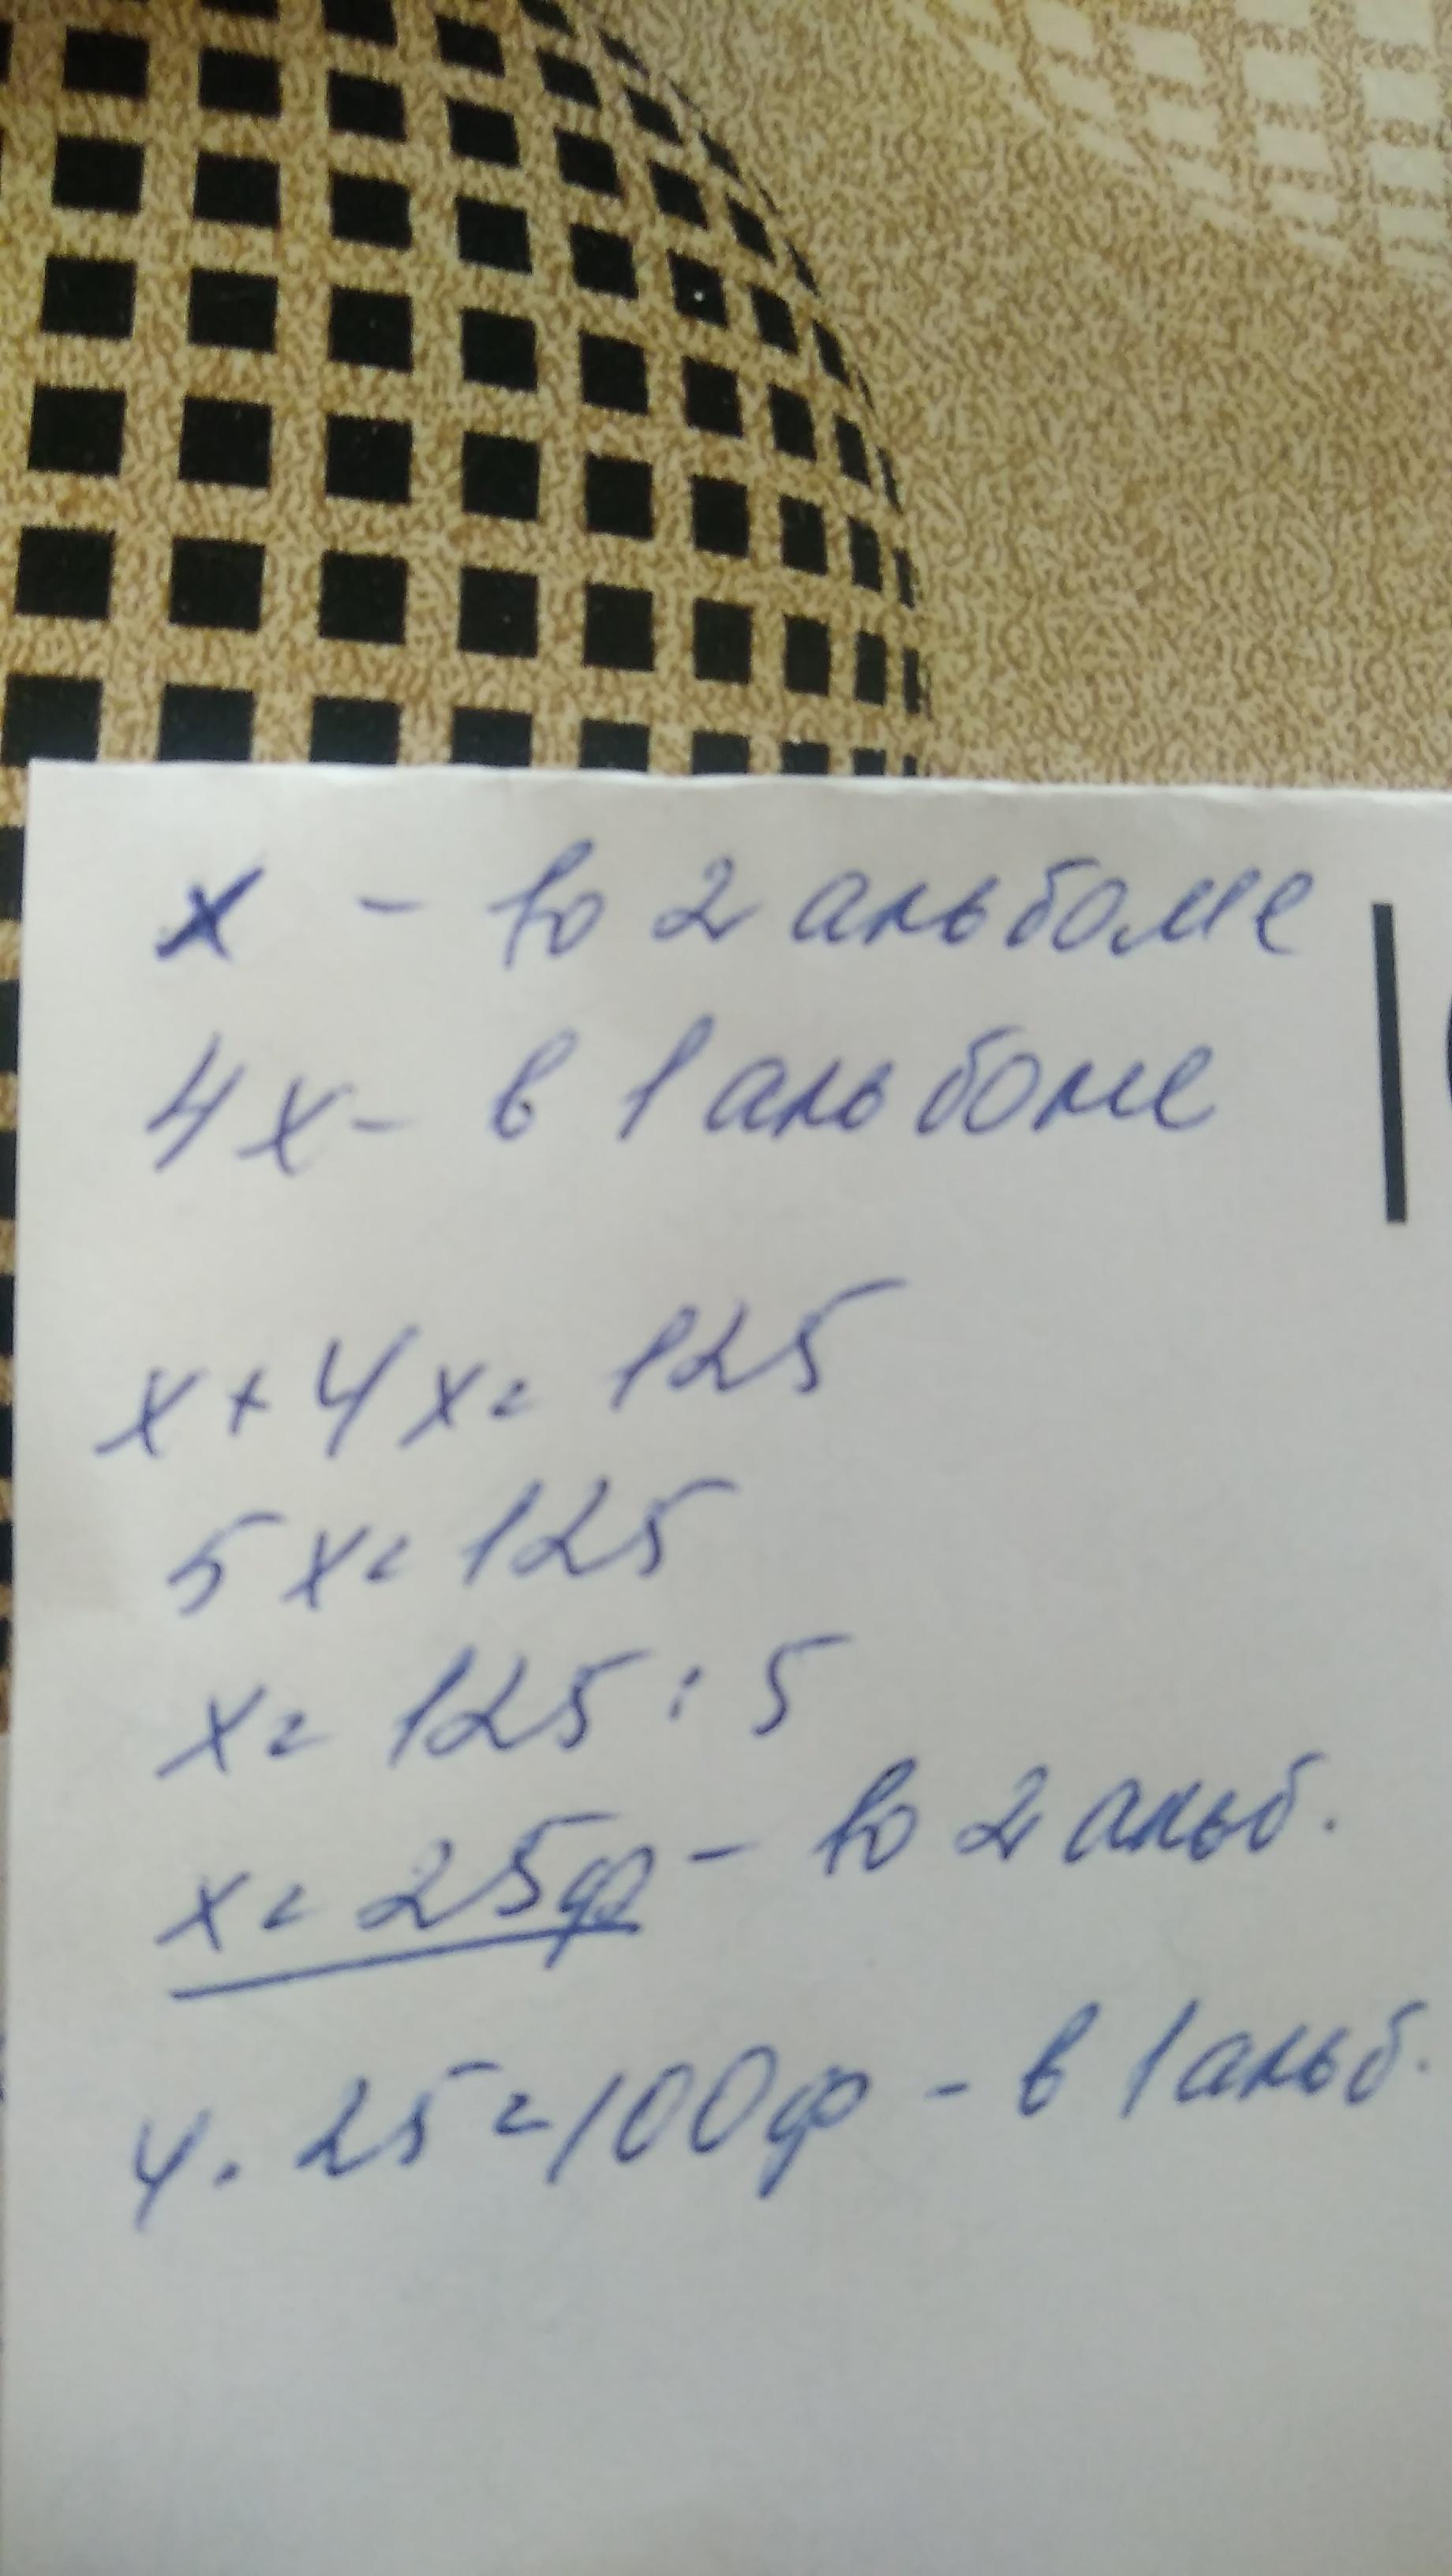 x - во 2 альбоме
4x - в 1 альбоме
x + 4x = 125
5x = 125
x = 125 : 5
x = 25ф - во 2 альб.
4 . 25 = 100ф - в 1 альб.